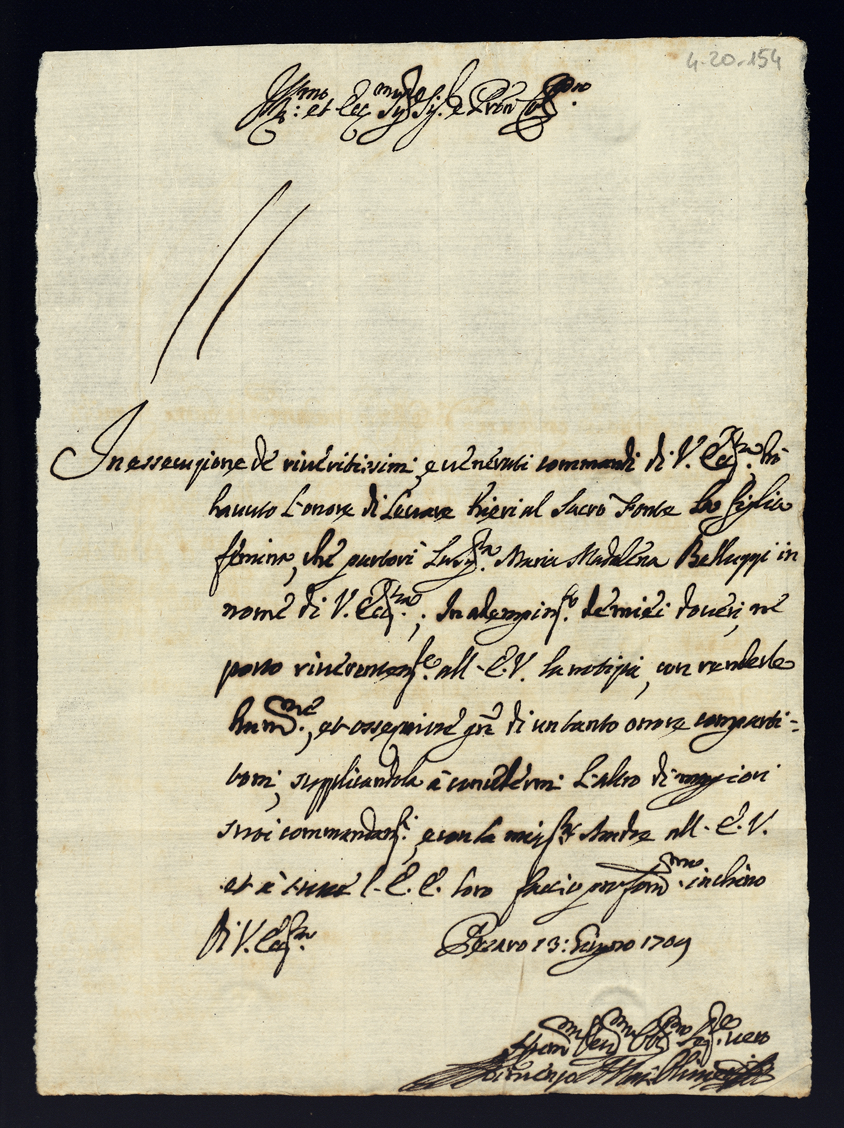 4-20-154
Ill.mo et Ecc.mo Sig. Sig. e Pron Col.mo
In essecuzione de riveritissimi, e venerati commandi di V. Ecc.za hò
hauuto l'onore di leuare hieri al Sacro Fonte la figlia
femina, che partorì la Sig.ra Maria Madalena Belluzzi in
nome di V. Ecc.za; In adempim.to de miei doueri, ne
porto riuerentem.te all'E.V. la notizia, con renderle
hum.me, et ossequiose gr.e di un tanto onore comparti=
tomi, supplicandola à concedermi l'altro di maggiori
suoi commandam.ti, e con la mia
all'E.V.
et à tutte l'E.E. loro faccio profond.mo inchino
Di V. Ecc.za
Pesaro 13: Giugno 1709
vero